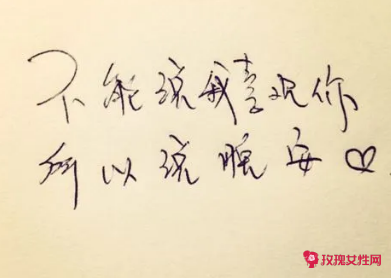 不能说我喜欢你
所以说晚安♡
玫瑰女性网